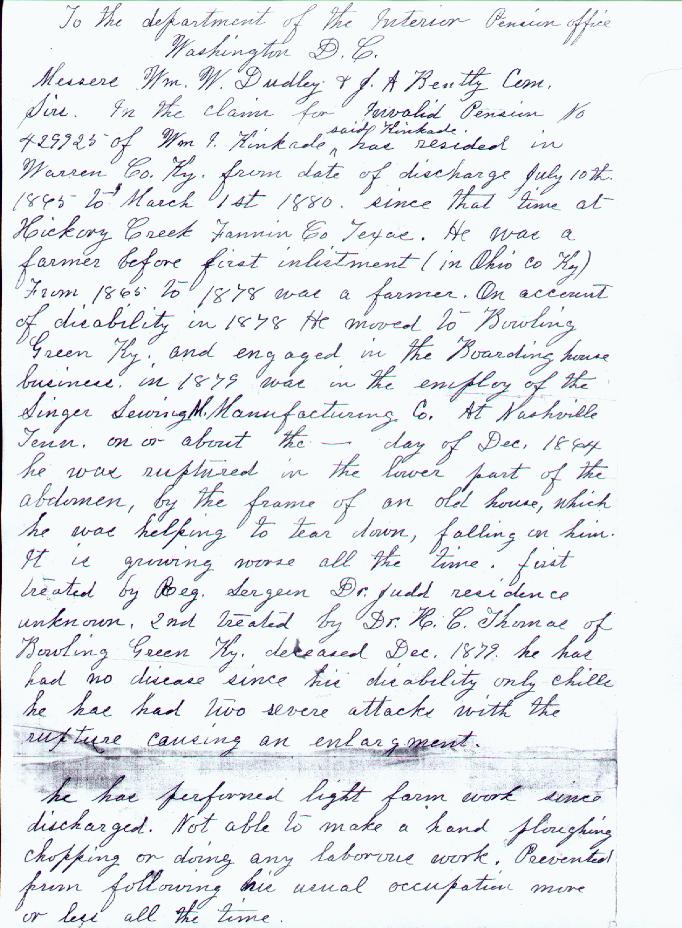 To the department of the Interior Pension office
Washington D. C.
Messers Wm. W. Dudley & J. A Bently Com.
Sirs. In the claim for Invalid Pension No
429925 of Wm I. Kinkade, said Kinkade. has resided in
Warren Co. Ky. from date of discharge July 10th.
1865 to March 1st 1880. since that time at
Hickory Creek Fannin Co Texas. He was a
farmer before first inlistment (in Ohio co Ky)
From 1865 to 1878 was a farmer. On account
of disability in 1878 He moved to Bowling
Green Ky. and engaged in the Boarding house
business. in 1879 was in the employ of the
Singer Sewing M. Manufacturing Co. At Nashville
Tenn. on or about the — day of Dec. 1864
he was ruptured in the lower part of the
abdomen, by the frame of an old house, which
he was helping to tear down, falling on him.
It is growing worse all the time. first
treated by Reg. Sergeon Dr. Judd residence
unknown. 2nd treated by Dr. H. C. Thomas of
Bowling Green Ky. deceased Dec. 1879. he has
had no disease since his disability only chills
he has had two severe attacks with the
rupture causing an enlargment.
he has perforned light farm work since
discharged. Not able to make a hand ploughing
chopping or doing any laborous work. Prevented
from following his usual occupation more
or less all the time.